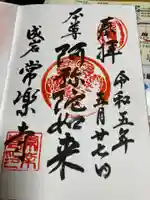 奉拝
令和五年
五月廿七日
本尊
阿弥陀如来
常楽寺